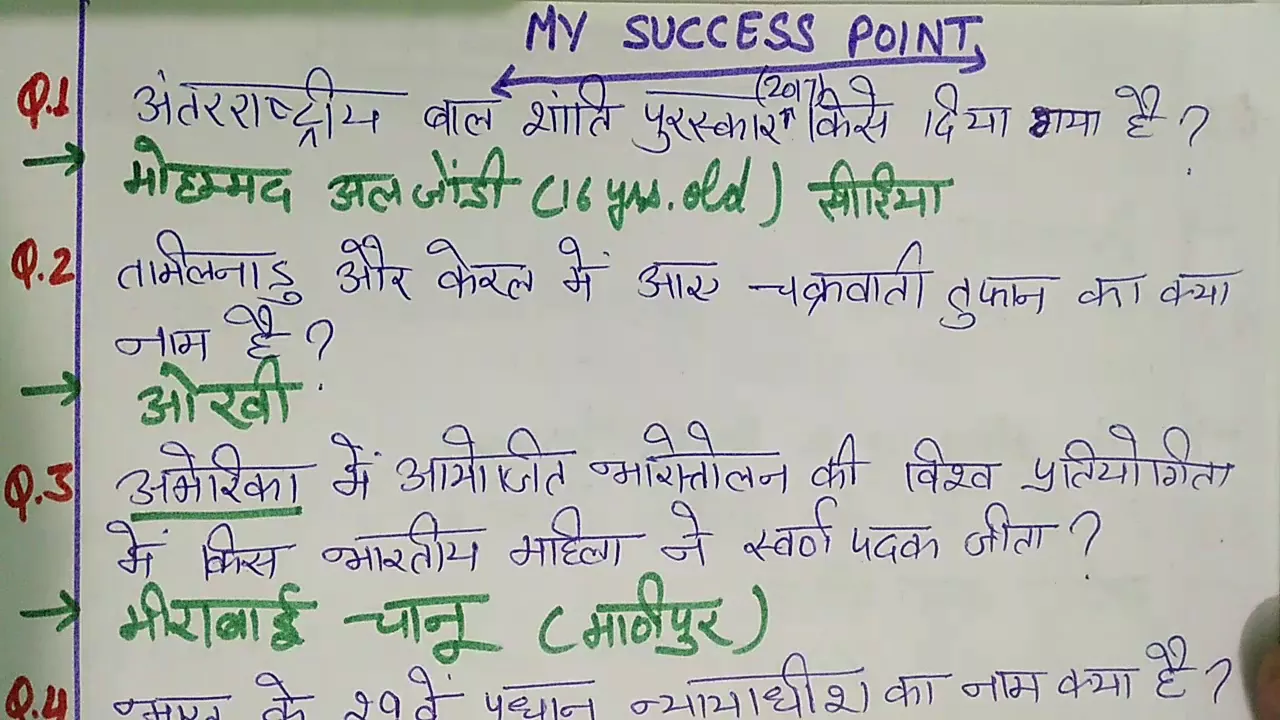 MY SUCCESS POINT
Q.1 अंतरराष्ट्रीय बाल शांति पुरस्कार (2017) किसे दिया गया है?
→ मोहम्मद अल जोंडी (16 yrs. old) सीरिया
Q.2 तामिलनाडु और केरल में आए चक्रवाती तुफान का क्या
नाम है?
→ ओखी
Q.3 अमेरिका में आयोजित भारोत्तोलन की विश्व प्रतियोगिता
में किस भारतीय महिला ने स्वर्ण पदक जीता?
→ मीराबाई चानू (मणीपुर)
Q.4 के वें प्रधान न्यायाधीश का नाम क्या है?